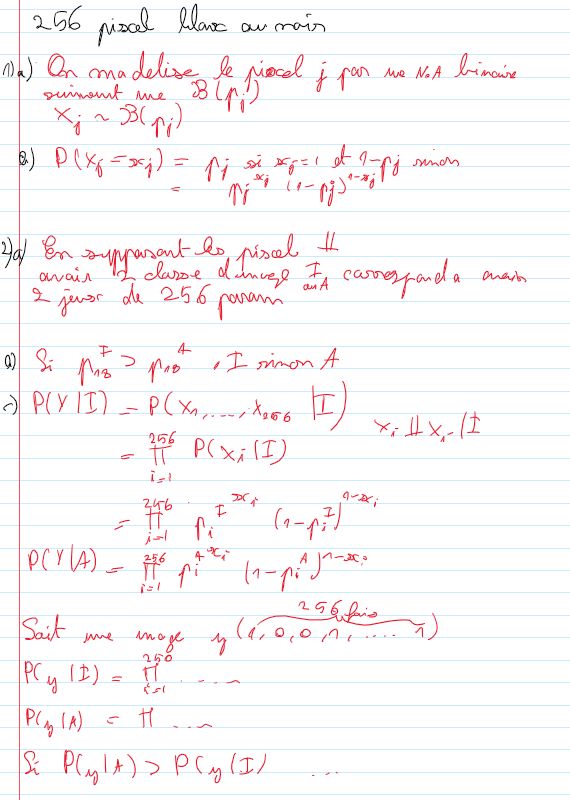 256 pixel blanc ou noir
1)a) On modélise le pixel j par une V.A binaire
suivant une B(pj)
Xj ~ B(pj)
b) P(Xj = xj) = pj si xj = 1 et 1-pj sinon
= pj^xj (1-pj)^1-xj
2)a) En supposant les pixel ⊥⊥
avoir 2 classe d'image I ou A correspond a avoir
2 jeux de 256 param
b) Si p18^I > p18^A , I sinon A
c) P(Y|I) = P(X1, ..., X256 | I)
Xi ⊥⊥ Xi- | I
= ∏_{i=1}^{256} P(Xi | I)
= ∏_{i=1}^{256} pi^I^xi (1-pi^I)^1-xi
P(Y|A) = ∏_{i=1}^{256} pi^A^xi (1-pi^A)^1-xi
256 fois
Soit une image y (1, 0, 0, 1, .... 1)
P(y | I) = ∏_{i=1}^{250} .....
P(y | A) = ∏ ....
Si P(y|A) > P(y|I) ...